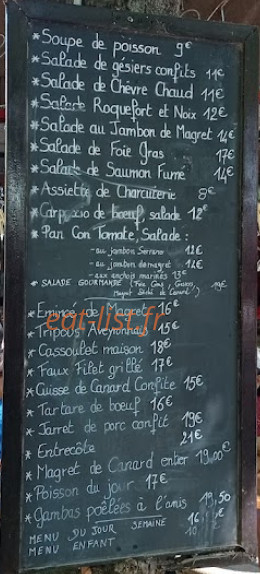 * Soupe de poisson 9€
* Salade de gésiers confits 11€
* Salade de Chèvre Chaud 11€
* Salade Roquefort et Noix 12€
* Salade au Jambon de Magret 14€
* Salade de Foie Gras 17€
* Salade de Saumon Fumé 14€
* Assiette de Charcuterie 8€
* Carpaccio de boeuf, salade 12€
* Pan Con Tomate, Salade :
- au jambon Serrano 12€
- au jambon de magret 12€
- aux anchois marinés 13€
* SALADE GOURMANDE (Foie Gras, Gésiers, 19€
Magret Séché de Canard)
* Emincé de Magret 16€
eat-list.fr
* Tripous Aveyronnais 15€
* Cassoulet maison 18€
* Faux Filet grillé 17€
* Cuisse de Canard Confite 15€
* Tartare de boeuf 16€
* Jarret de porc confit 19€
* Entrecôte 21€
* Magret de Canard entier 19,00€
* Poisson du jour 17€
* Gambas poêlées à l'anis 19,50
MENU DU JOUR SEMAINE
MENU ENFANT